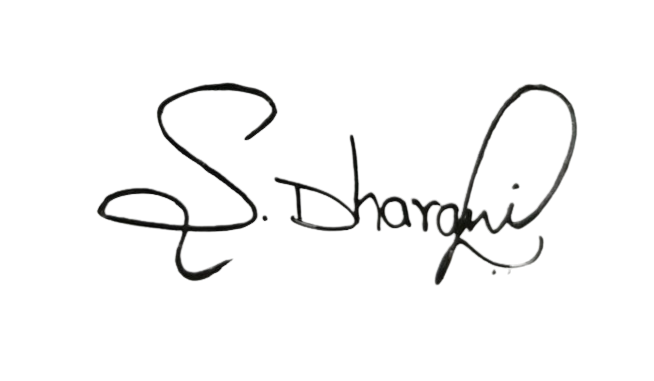 S. Dharani